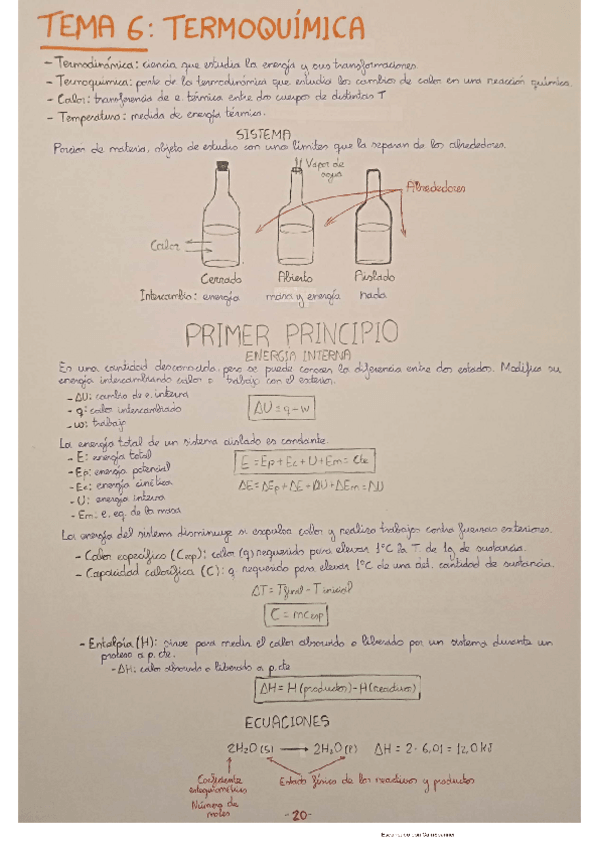 TEMA 6: TERMOQUÍMICA
- Termodinámica: ciencia que estudia la energía y sus transformaciones.
- Termoquímica: parte de la termodinámica que estudia los cambios de calor en una reacción química.
- Calor: transferencia de e. térmica entre dos cuerpos de distintas T
- Temperatura: medida de energía térmica.
SISTEMA
Porción de materia, objeto de estudio con unos límites que la separan de los alrededores.
Vapor de
agua
Alrededores
Calor
Cerrado Abierto Aislado
Intercambio: energía masa y energía nada
PRIMER PRINCIPIO
ENERGÍA INTERNA
Es una cantidad desconocida, pero se puede conocer la diferencia entre dos estados. Modifica su
energía intercambiando calor o trabajo con el exterior.
- ΔU: cambio de e. interna
- q: calor intercambiado
- w: trabajo
ΔU = q - w
La energía total de un sistema aislado es constante.
- E: energía total
- Ep: energía potencial
- Ec: energía cinética
- U: energía interna
- Em: e. eq. de la masa
E = Ep + Ec + U + Em = cte
ΔE = ΔEp + ΔE + ΔU + ΔEm = ΔU
La energía del sistema disminuye si expulsa calor y realiza trabajos contra fuerzas exteriores.
- Calor específico (Cesp): calor (q) requerido para elevar 1°C la T. de 1g de sustancia.
- Capacidad calorífica (C): q requerido para elevar 1°C de una det. cantidad de sustancia.
ΔT = T final - T inicial
C = mCesp
- Entalpía (H): sirve para medir el calor absorvido o liberado por un sistema durante un
proceso a p. cte.
- ΔH: calor absorvido o liberado a p. cte
ΔH = H (productos) - H (reactivos)
ECUACIONES
2H₂O (s) ⟶ 2H₂O (l) ΔH = 2 · 6,01 = 12,0 kJ
Coeficiente
estequiométrico
Número de
moles
Estado físico de los reactivos y productos
-20-